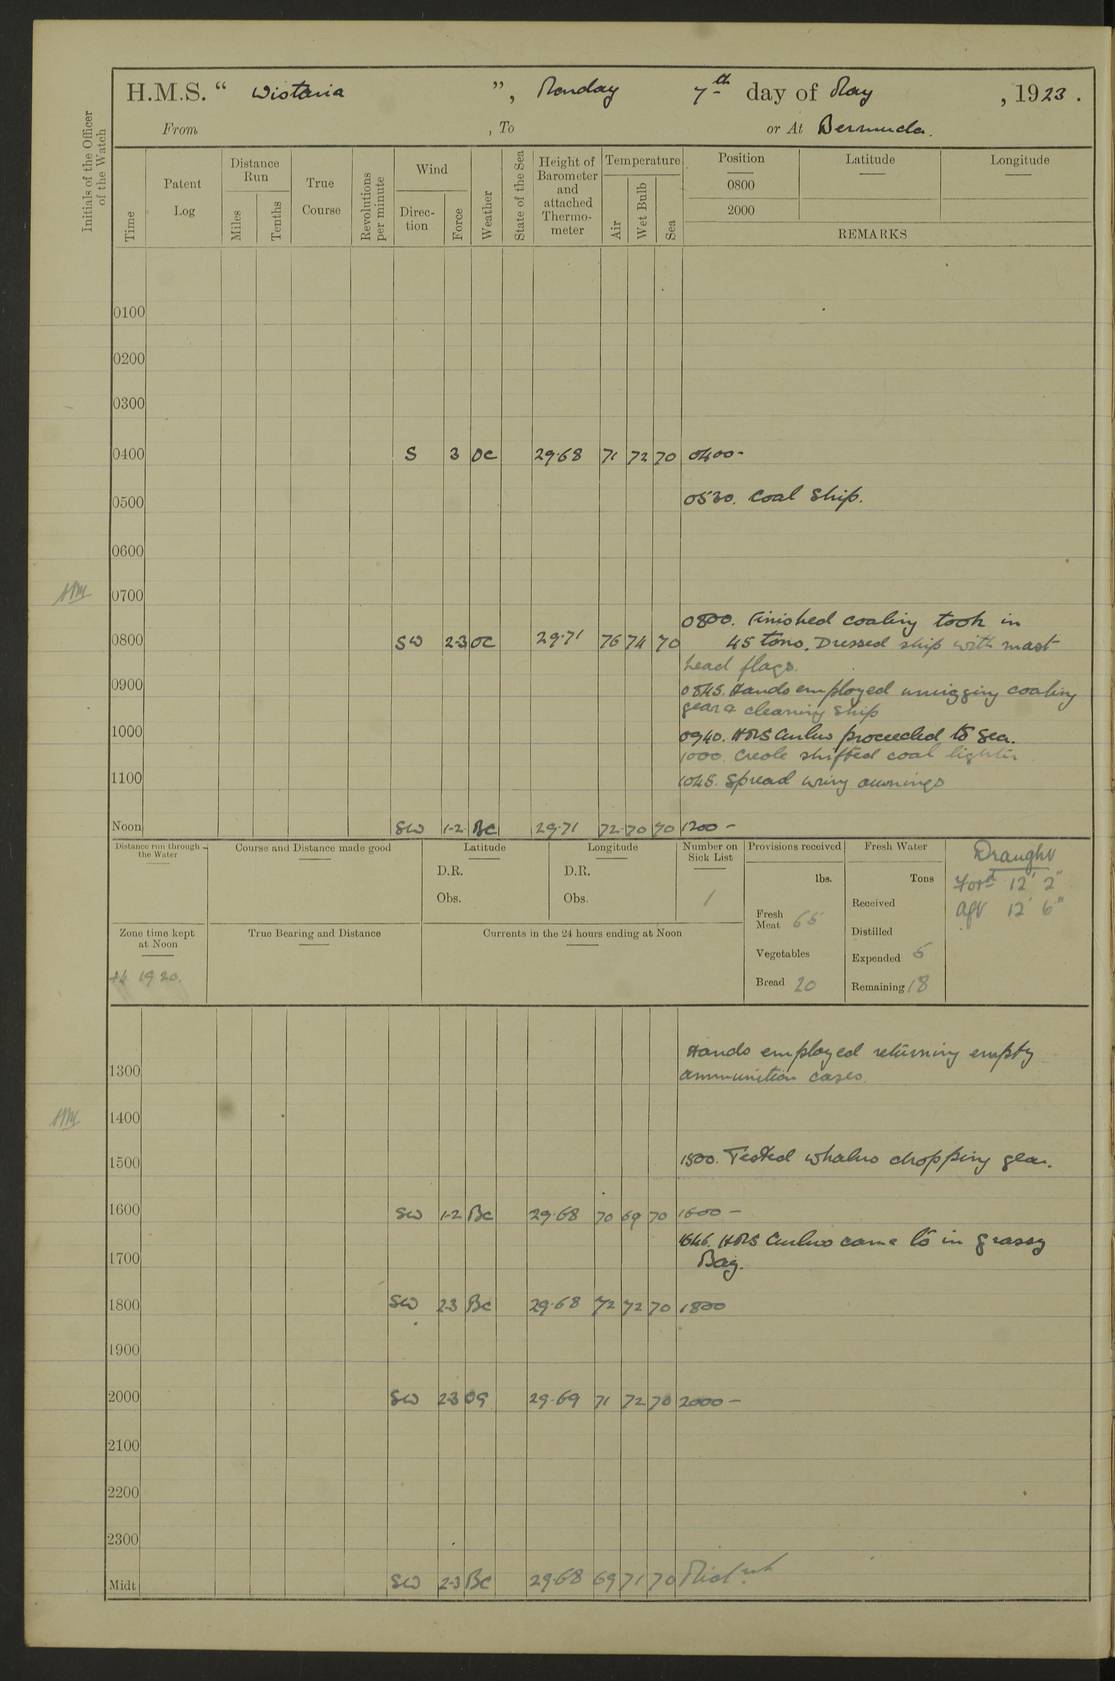 H.M.S. “ Wistaria ”, Monday 7th day of May, 1923.
From , To or At Bermuda.
Initials of the Officer of the Watch
Time
Patent Log
Distance Run
Miles
Tenths
True Course
Revolutions per minute
Wind
Direction
Force
Weather
State of the Sea
Height of Barometer and attached Thermometer
Temperature
Air
Wet Bulb
Sea
Position Latitude Longitude
0800
2000
REMARKS
0100
0200
0300
0400 S 3 OC 29.68 71 72 70 0400-
0500 0530. Coal Ship.
0600
0700
0800. Finished coaling took in
0800 SW 2-3 OC 29.71 76 74 70 45 tons. Dressed ship with mast
head flags.
0900 0845. Hands employed unrigging coaling
gear & cleaning ship
1000 0940. HMS Curlew proceeded to sea.
1000. Creole shifted coal lighter
1100 1045. Spread wing awnings
Noon SW 1-2 BC 29.71 72 70 70 1200 -
Distance run through the Water
Course and Distance made good
Latitude
D.R.
Obs.
Longitude
D.R.
Obs.
Number on Sick List
1
Provisions received
lbs.
Fresh Meat 65
Vegetables
Bread 20
Fresh Water
Tons
Received
Distilled
Expended 5
Remaining 18
Draught
Ford 12' 2"
Aft 12' 6"
Zone time kept at Noon
+4 1920.
True Bearing and Distance
Currents in the 24 hours ending at Noon
Hands employed returning empty
1300 ammunition cases.
1400
1500 1500. Tested whalers dropping gear.
1600 SW 1-2 BC 29.68 70 69 70 1600 -
1646. HMS Curlew came to in Grassy
1700 Bay.
1800 SW 2-3 BC 29.68 72 72 70 1800
1900
2000 SW 2-3 OG 29.69 71 72 70 2000 -
2100
2200
2300
Midt SW 2-3 BC 29.68 69 71 70 Midt